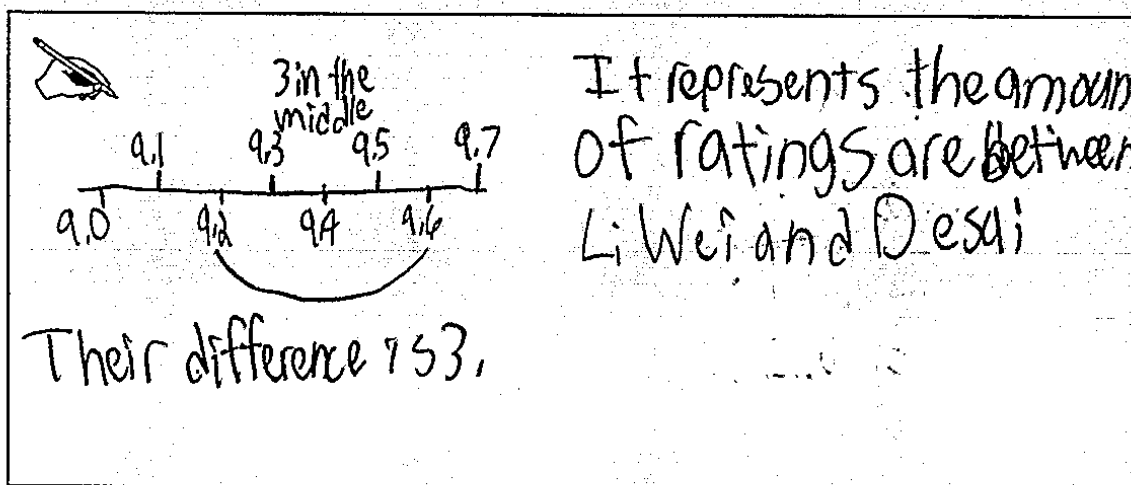 3 in the
middle
9.1 9.3 9.5 9.7
9.0 9.2 9.4 9.6
Their difference is 3.
It represents the amoun
of ratings are between
Li Wei and Desai